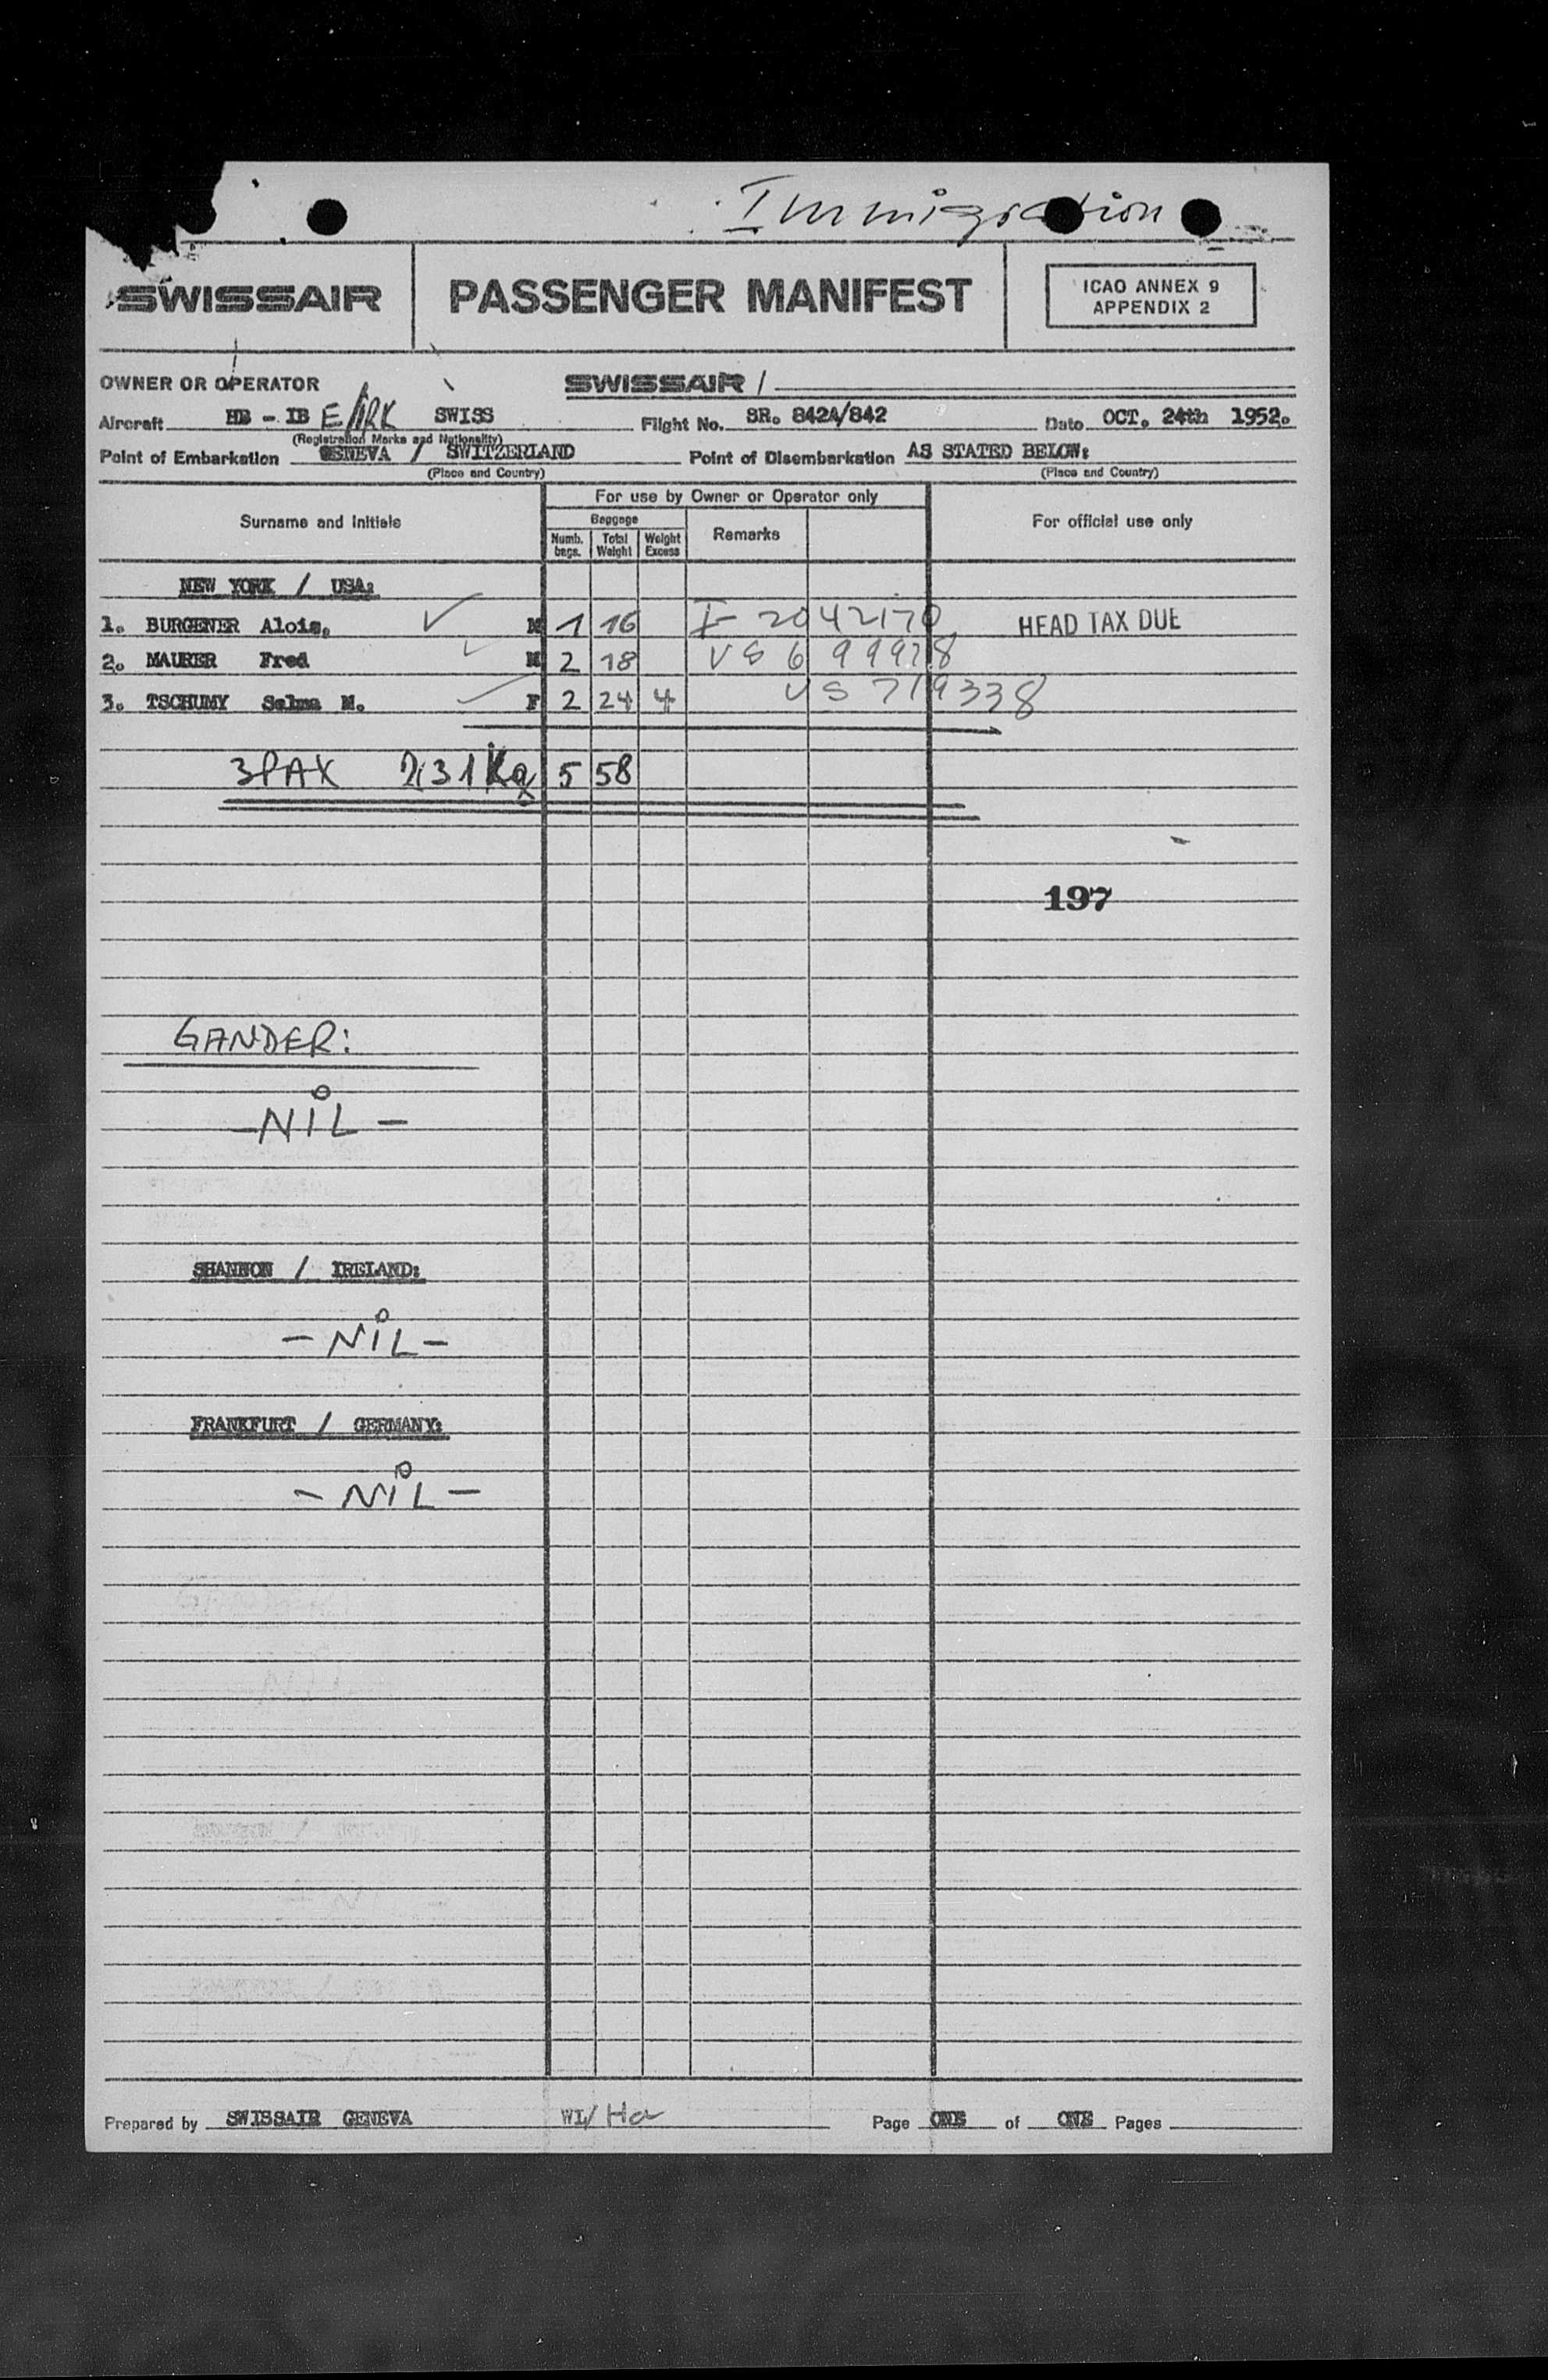 Immigration
SWISSAIR
PASSENGER MANIFEST
ICAO ANNEX 9
APPENDIX 2
OWNER OR OPERATOR SWISSAIR /
Aircraft HB - IB E/IRK SWISS Flight No. SR. 842A/842 Date OCT. 24th 1952.
(Registration Marks and Nationality)
Point of Embarkation GENEVA / SWITZERLAND Point of Disembarkation AS STATED BELOW:
(Place and Country) (Place and Country)
For use by Owner or Operator only
Surname and Initials Baggage Remarks For official use only
Numb. bags. Total Weight Weight Excess
NEW YORK / USA:
1. BURGENER Alois, M 1 16 I- 2042170 HEAD TAX DUE
2. MAURER Fred M 2 18 VS 699978
3. TSCHUMY Selma M. F 2 24 4 VS 719338
3PAX 231Kg 5 58
197
GANDER:
-NIL-
SHANNON / IRELAND:
-NIL-
FRANKFURT / GERMANY:
-NIL-
Prepared by SWISSAIR GENEVA WL/Ha Page ONE of ONE Pages